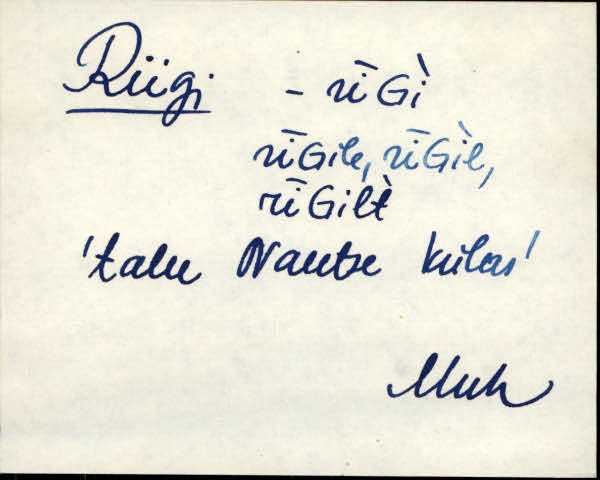 Riigi - rīGì
rīGile, rīGil̀,
rīGilt̀
'talu Nautse külas'
Muh